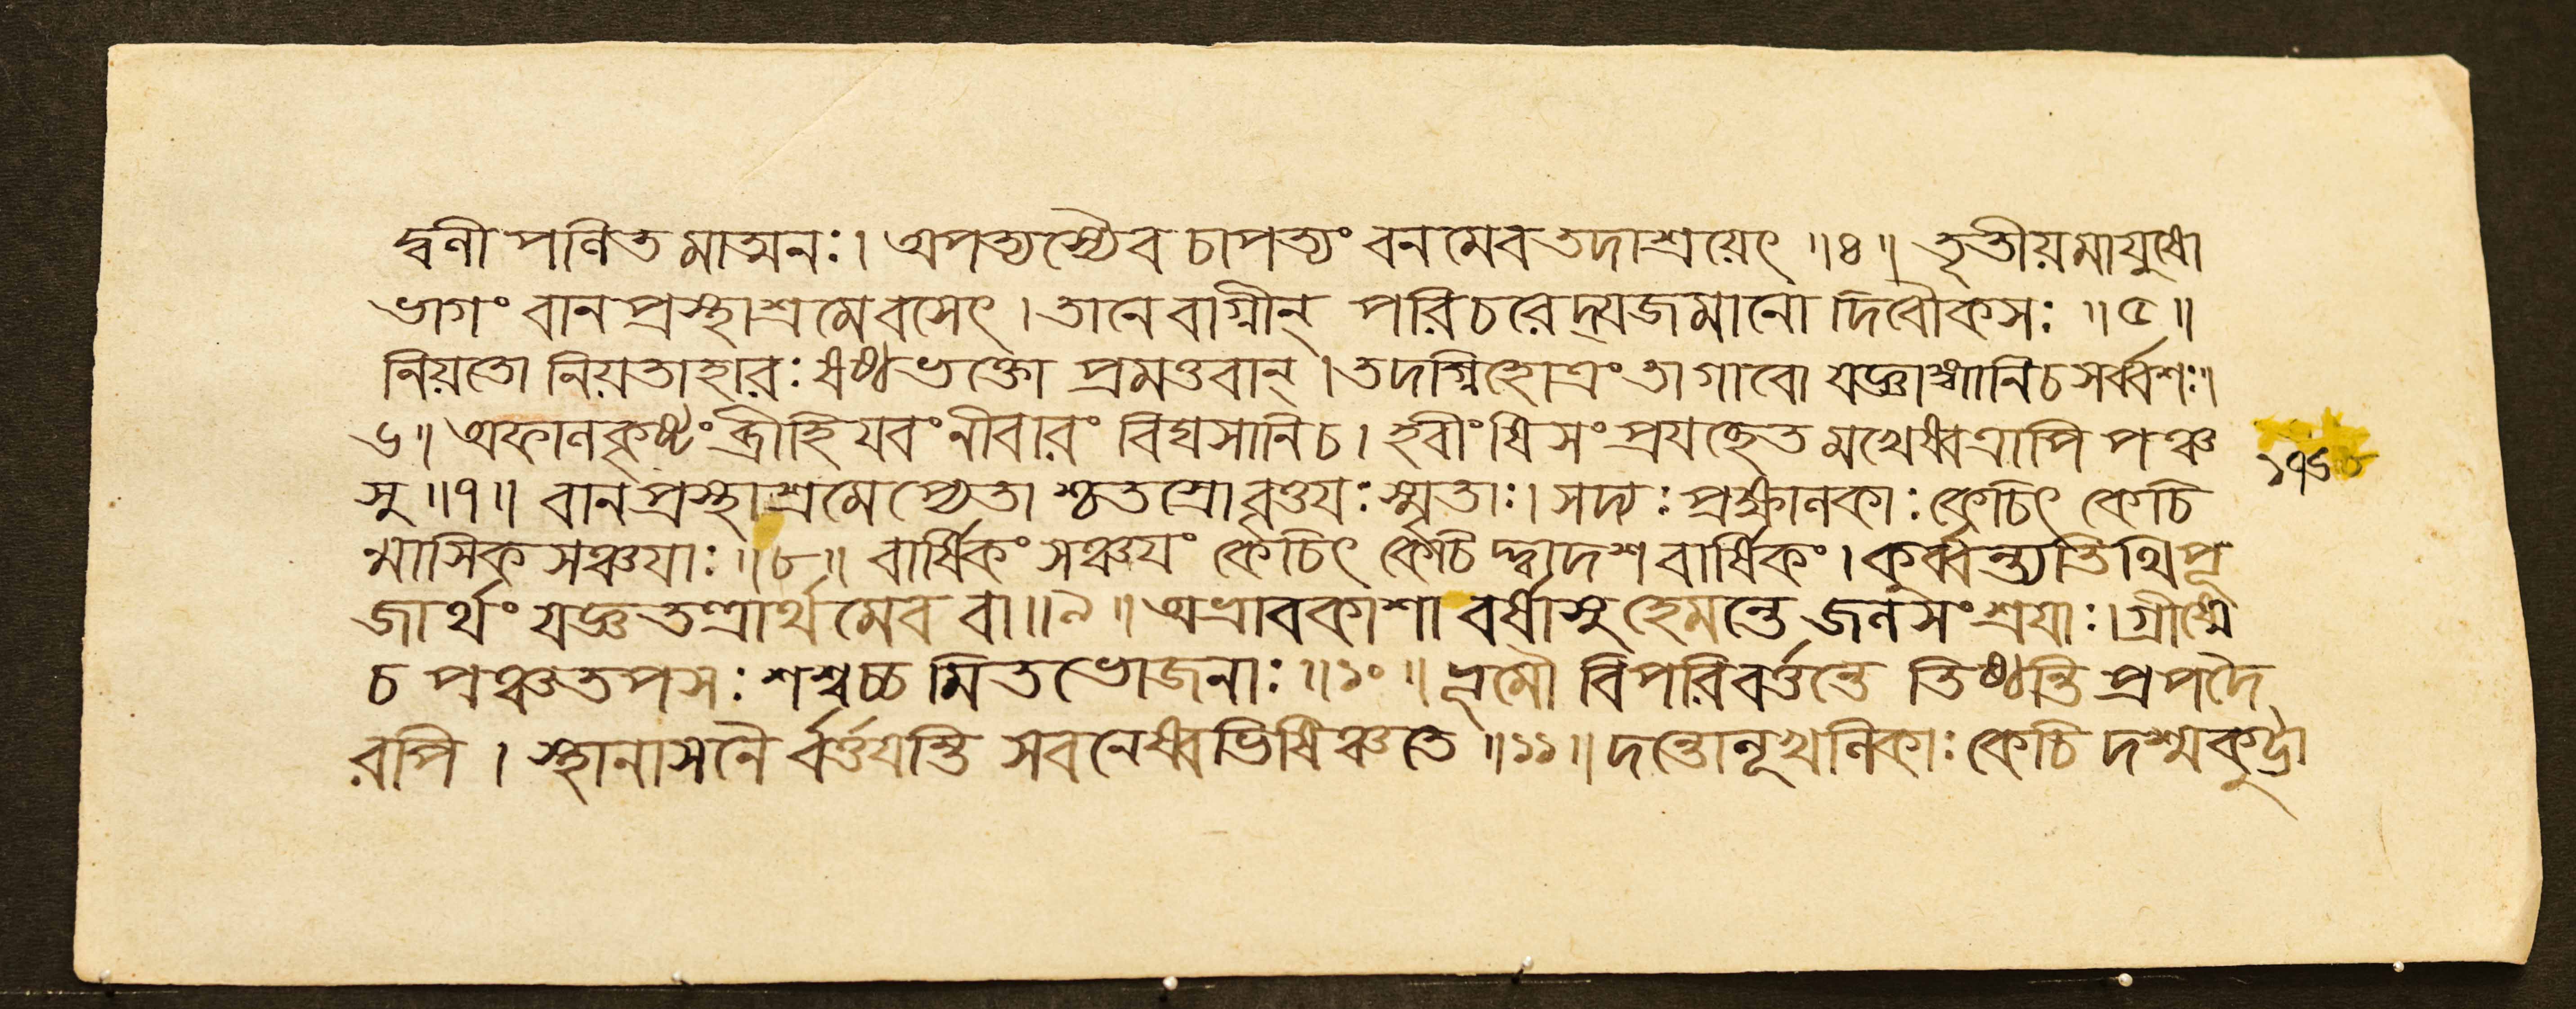 দ্বলী পলিত মাত্মনঃ। অপত্যস্যৈব চাপত্যং বনমেব তদাশ্রয়েৎ ॥৪॥ তৃতীয়মাযুষো
ভাগং বানপ্রস্থাশ্রমে বসেৎ। তানেবাগ্নীন্ পরিচরেদ্যজমানো দিবৌকসঃ ॥৫॥
নিয়তো নিয়তাহারঃ ষষ্ঠভক্তো প্রমত্তবান্। তদগ্নিহোত্রং তা গাবো যজ্ঞাঙ্গানি চ সর্ব্বশঃ॥
৬॥ অফালকৃষ্টং ব্রীহিযবং নীবারং বিঘসানি চ। হবীংষি সংপ্রযচ্ছেত মখেষ্বত্রাপি পঞ্চ
সু ॥৭॥ বানপ্রস্থাশ্রমেপ্যেতাশ্চতস্রো বৃত্তযঃ স্মৃতাঃ। সদ্যঃ প্রক্ষালকাঃ কেচিৎ কেচি
ন্মাসিক সঞ্চযাঃ ॥৮॥ বার্ষিকং সঞ্চযং কেচিৎ কেচিদ্দ্বাদশ বার্ষিকং। কুর্ব্বন্ত্যতিথিপূ
জার্থং যজ্ঞতন্ত্রার্থমেব বা॥৯॥ অভ্রাবকাশা বর্ষাসু হেমন্তে জলসংশ্রযাঃ। গ্রীষ্মে
চ পঞ্চতপসঃ শশ্বচ্চ মিতভোজনাঃ ॥১০॥ ভূমৌ বিপরিবর্ত্তন্তে তিষ্ঠন্তি প্রপদৈ
রপি। স্থানাসনৈ র্বর্ত্তযন্তি সবনেষ্বভিষিঞ্চতে ॥১১॥ দন্তোলূখলিকাঃ কেচি দশ্মকুট্টা